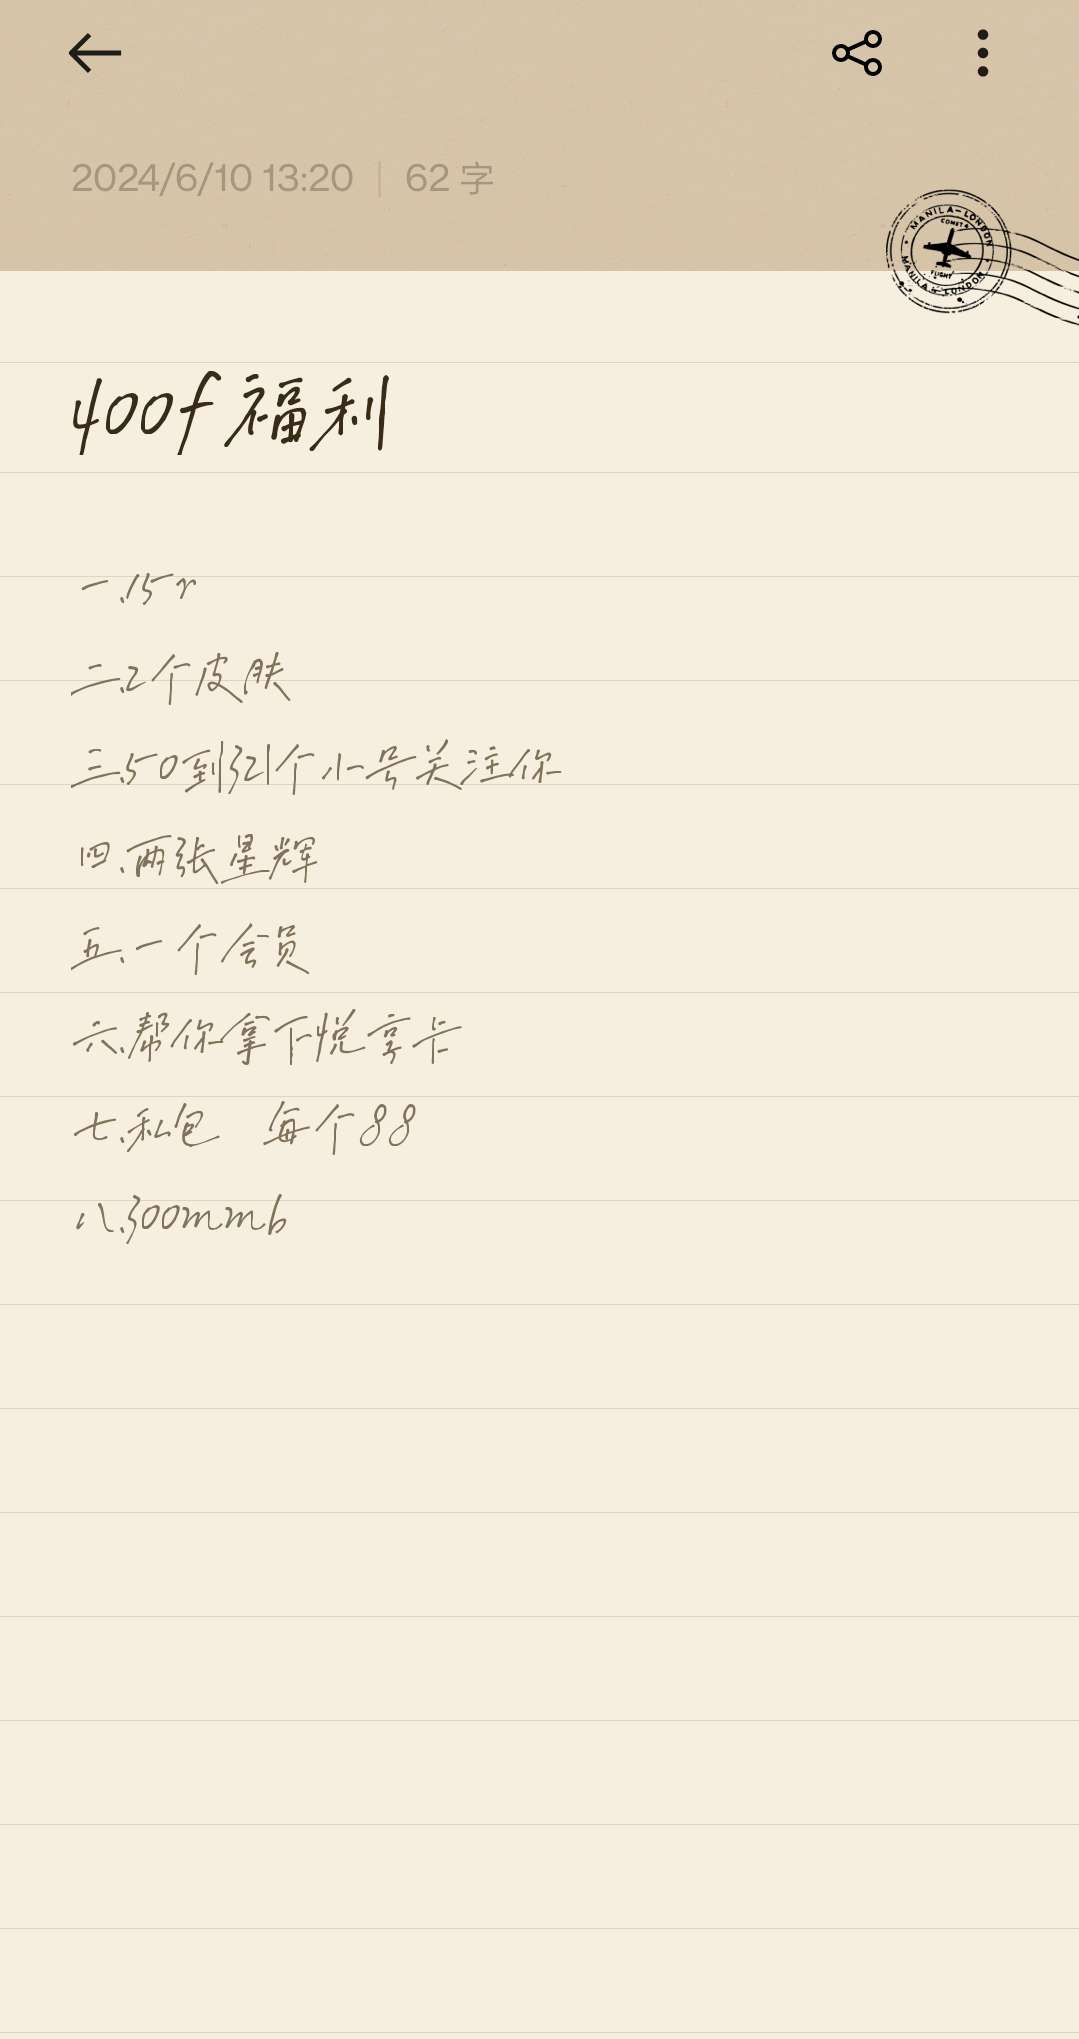 2024/6/10 13:20 | 62 字
MANILA-LONDON
COMET 4
FLIGHT
MANILA & LONDON
400f福利
一.15r
二.2个皮肤
三.50到321个小号关注你
四.两张星辉
五.一个会员
六.帮你拿下悦享卡
七.私包 每个88
八.300mmb